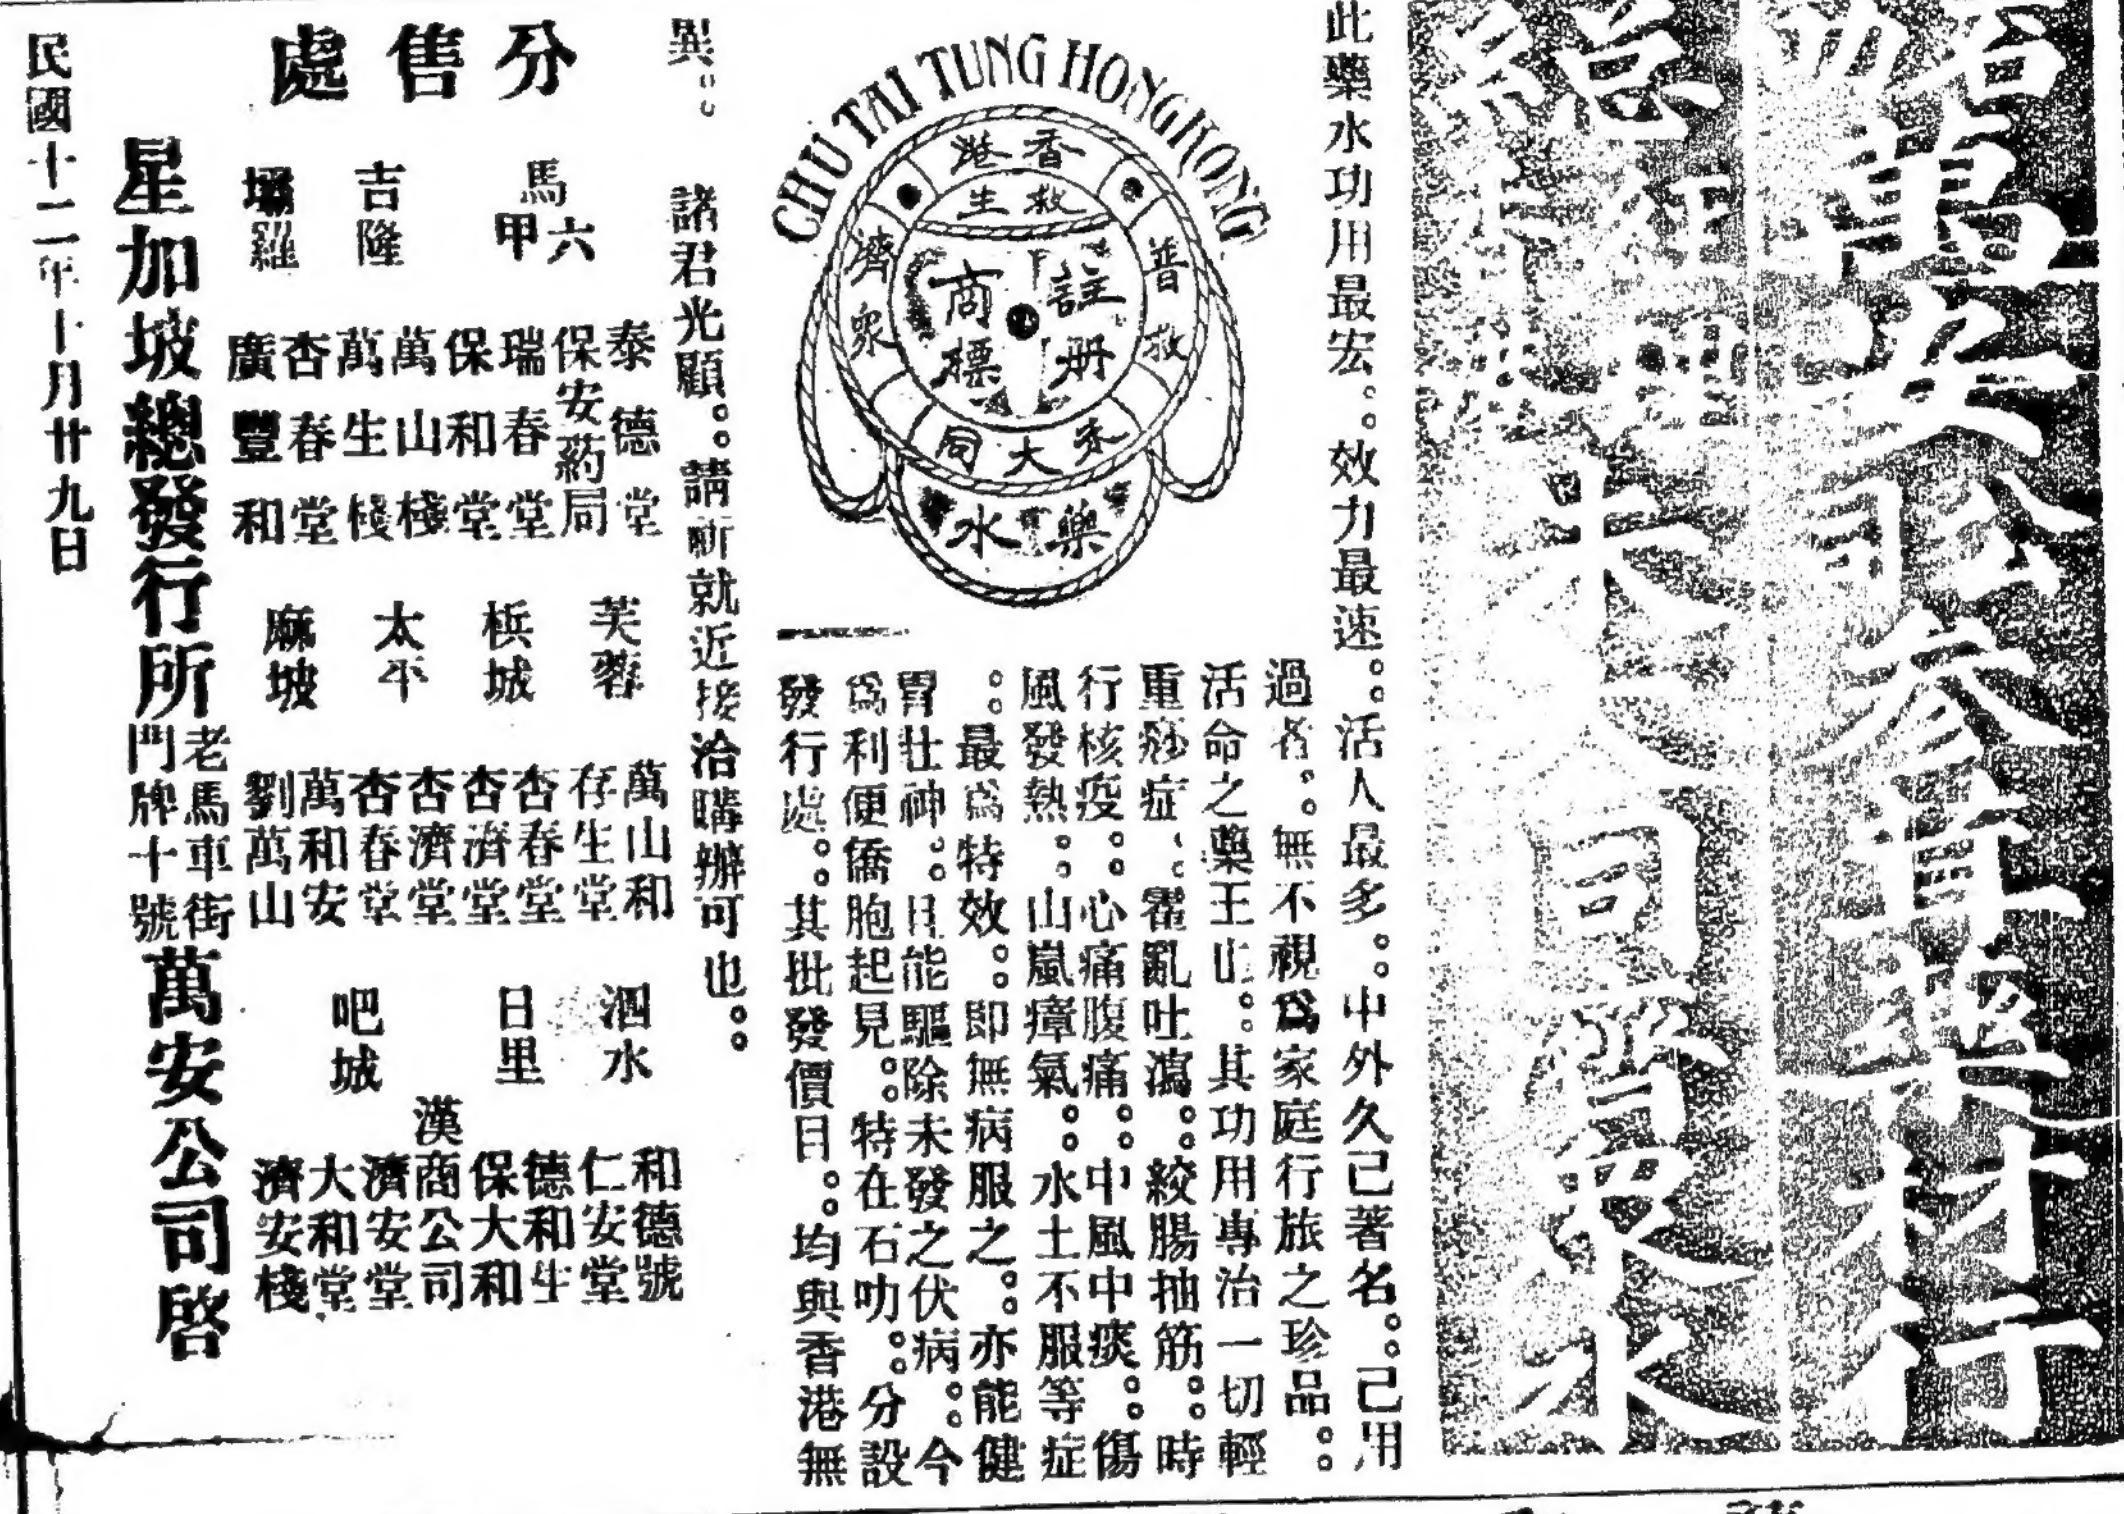 萬安公司參茸藥材行
總經理朱大同藥水
此藥水功用最宏。。效力最速。。活人最多。。中外久己著名。。己用
過者。。無不視爲家庭行旅之珍品。。
活命之藥王也。。其功用專治一切輕
重痧症、霍亂吐瀉。。絞腸抽筋。。時
行核疫。。心痛腹痛。。中風中痰。。傷
風發熱。。山嵐瘴氣。。水土不服等症
。。最爲特效。。即無病服之。。亦能健
胃壯神。。且能驅除未發之伏病。。今
爲利便僑胞起見。。特在石叻。。分設
發行處。。其批發價目。。均與香港無
異。。 諸君光顧。。請就近接洽購辦可也。。
CHU TAI TUNG HONGKONG
香港
救生
普救
濟眾
註册
商標
朱大同
藥水
分售處
馬六甲
泰德堂
保安葯局
瑞春堂
保和堂
吉隆
萬山棧
萬生棧
壩羅
杏春堂
廣豐和
芙蓉
萬山和
存生堂
梹城
杏春堂
杏濟堂
太平
杏濟堂
杏春堂
麻坡
萬和安
劉萬山
泗水
和德號
仁安堂
日里
德和生
保大和
漢商公司
吧城
濟安堂
大和堂
濟安棧
星加坡總發行所 老馬車街門牌十號 萬安公司啓
民國十二年十月廿九日